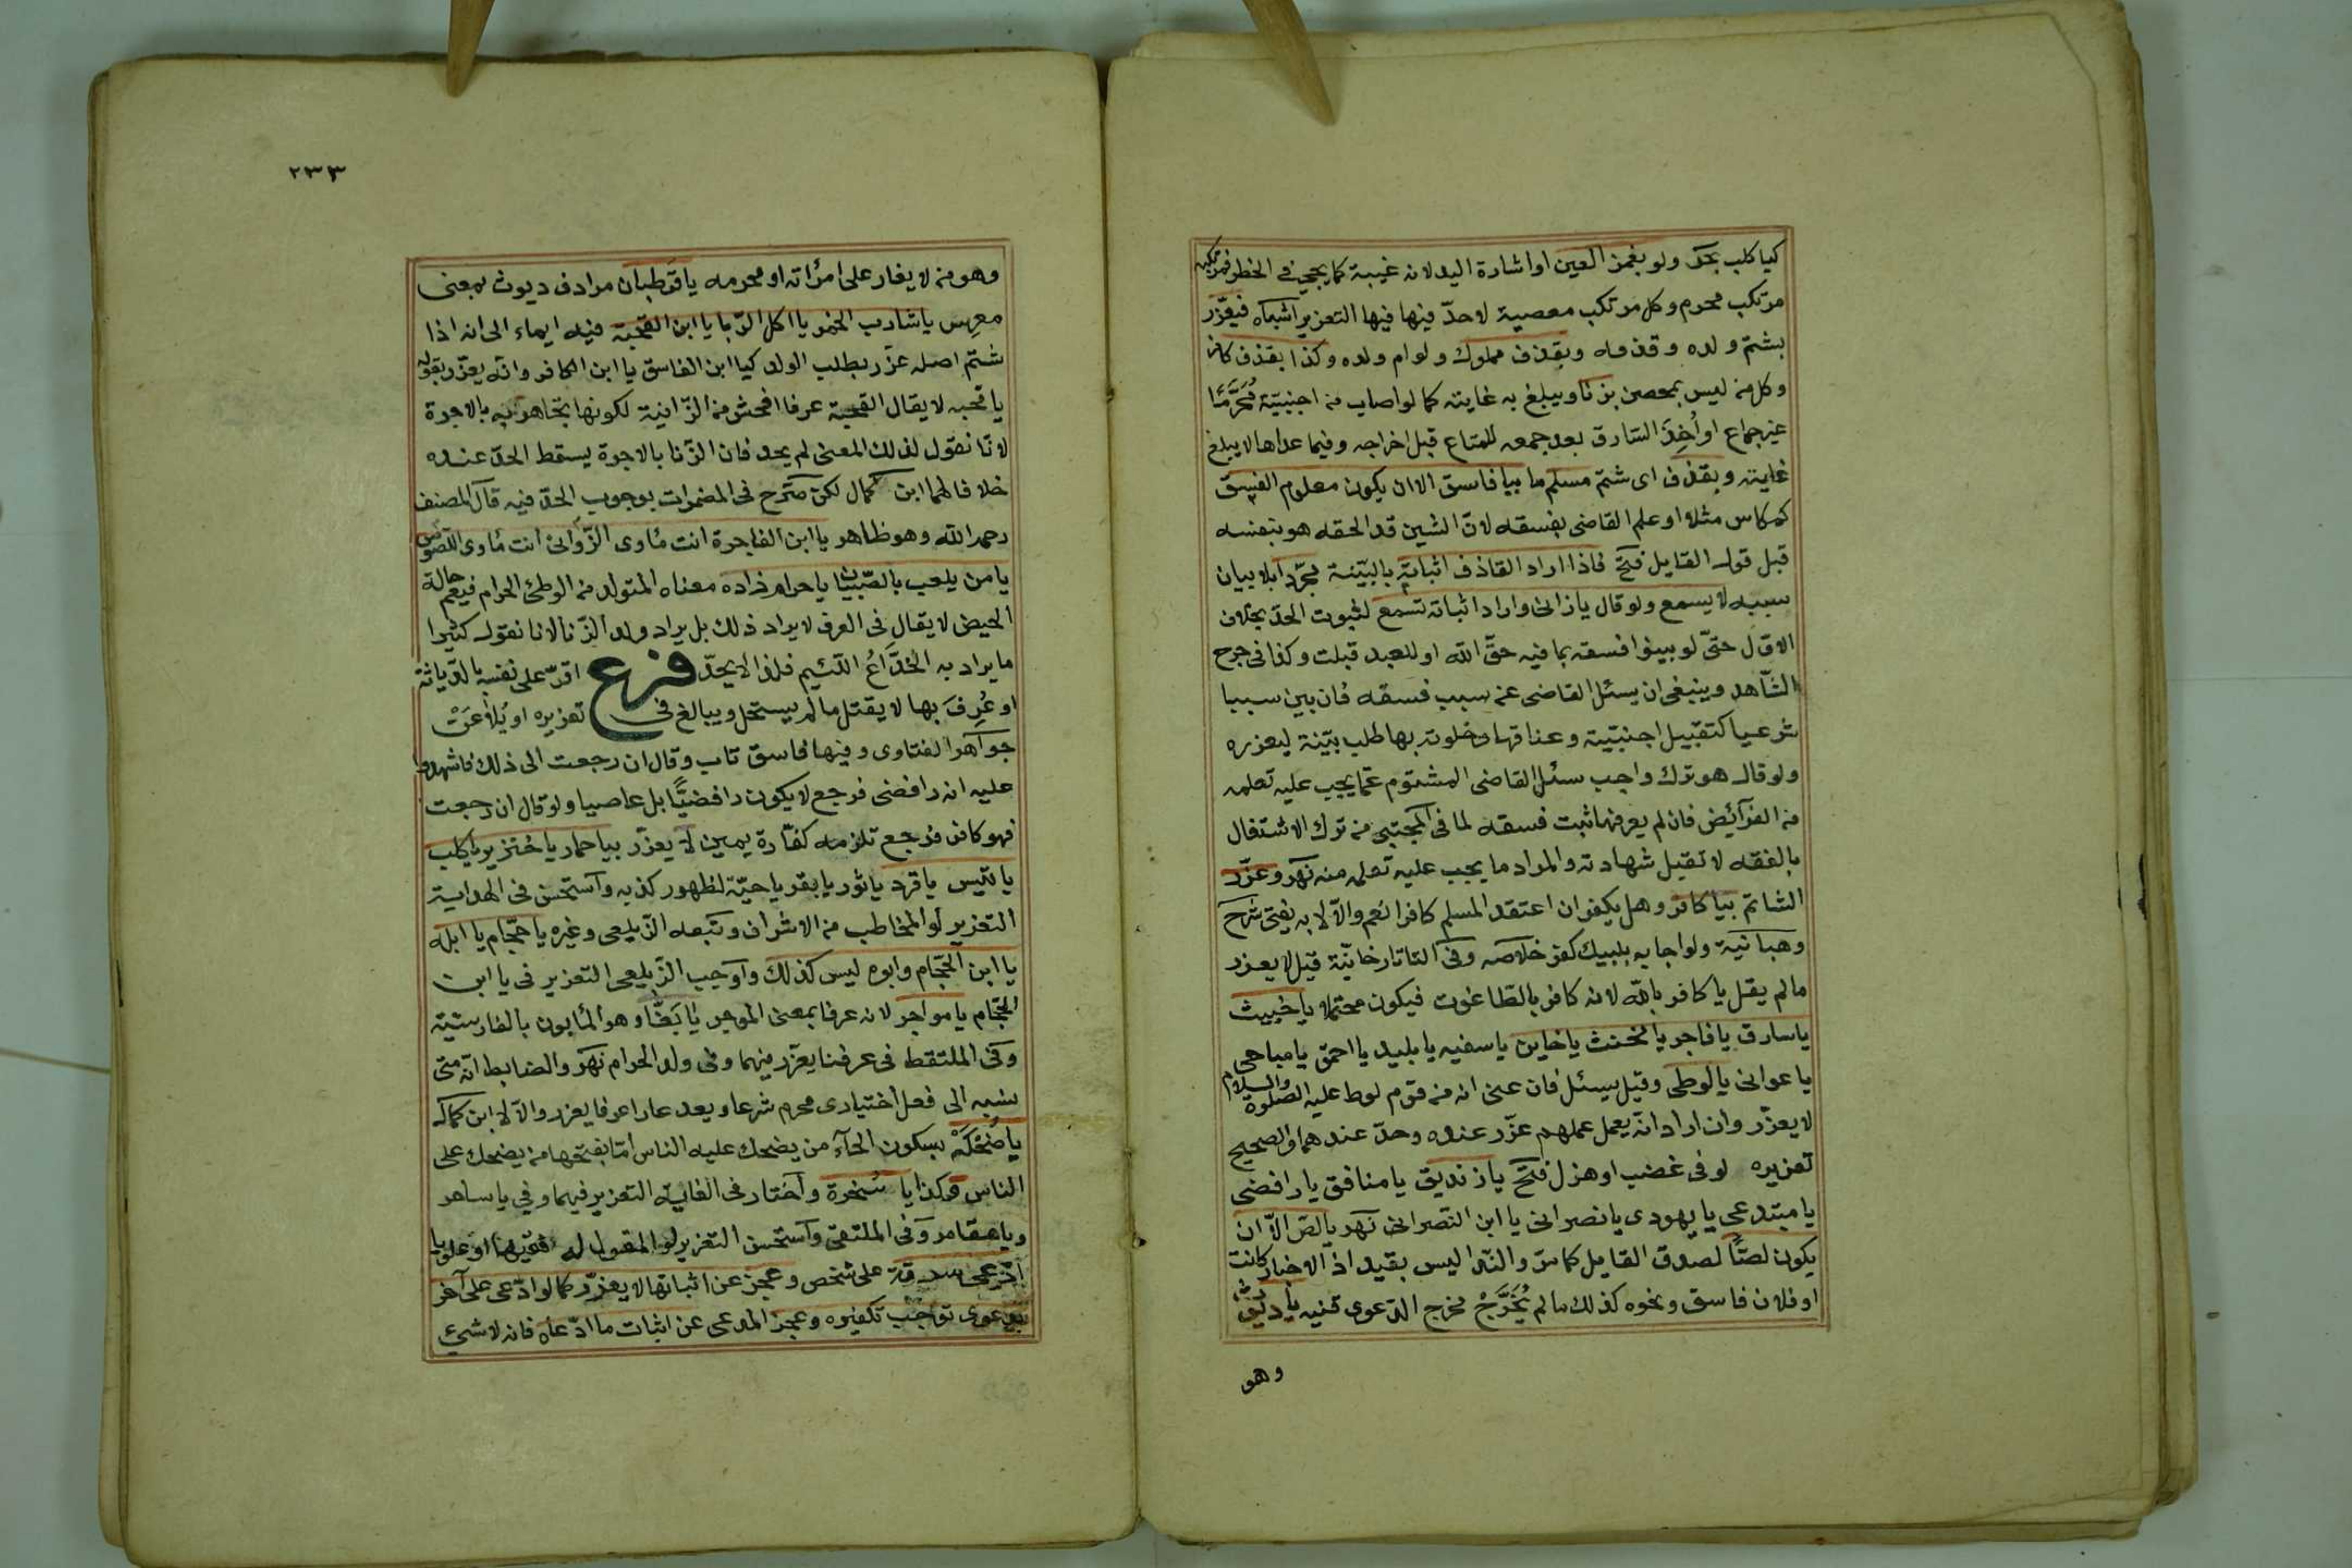 كيا كلب بحر ولو بغمز العين او اشارة اليد لانه غيبة كما يجئ فى الخطر فمرتكبه
مرتكب محرم وكل مرتكب معصية لا حدّ فيها فيها التعزير اشباه فيعزّر
بشتم ولده وقذفه وبقذف مملوك ولو ام ولده وكذا بقذف كافر
وكل من ليس بمحصن بزنا ويبلغ به غايته كما لو اصاب من اجنبيّة مُحَرَّمًا
غير جماع او اُخِذَ السّارق بعد جمعه للمتاع قبل اخراجه وفيما عداها لا يبلغ
غايته وبقذف اى شتم مسلم ما بيا فاسق الا ان يكون معلوم الفسق
كمكاس مثلا او علم القاضى بفسقه لانّ الشين قد الحقه هو بنفسه
قبل قول القايل فتح فاذا اراد القاذف اثباته بالبيّنة مجرّدا بلا بيان
سببه لا يسمع ولو قال يا زانى واراد اثباته تسمع لثبوت الحدّ بخلاف
الاوّل حتّى لو بينوا فسقه بما فيه حقّ الله او للعبد قبلت وكذا فى جرح
الشّاهد وينبغى ان يسئل القاضى عن سبب فسقه فان بين سببا
شرعيا كتقبيل اجنبيّة وعناقها وخلوته بها طلب بيّنة ليعزره
ولو قال هو ترك واجب سئل القاضى المشتوم عمّا يجب عليه تعلمه
من الفرآئض فان لم يعرفها ثبت فسقه لما فى المجتبى من ترك الاشتغال
بالفقه لا تقبل شهادته والمراد ما يجب عليه تعلمه منه نهر وعزّر
الشاتم بيا كافر وهل يكفر ان اعتقد المسلم كافرا نعم والّا لا به يفتى شرح
وهبانيّة ولو اجابه بلبيك كفر خلاصه وفى التاتارخانيّة قيل لا يعزر
ما لم يقل يا كافر بالله لانه كافر بالطّاغوت فيكون محتملا يا خبيث
يا سارق يا فاجر يا مخنث يا خاين يا سفيه يا بليد يا احمق يا مباحى
يا عوانى يا لوطى وقيل يسئل فان عنى انه من قوم لوط عليه الصلوة والسلام
لا يعزّر وان اراد انّه يعمل عملهم عزّر عنده وحدّ عندهما والصحيح
تعزيره لو فى غضب او هزل فتح يا زنديق يا منافق يا رافضى
يا مبتدعى يا يهودى يا نصرانى يا ابن النّصرانى نهر يا لصّ الّا ان
يكون لصًّا لصدق القايل كما مرّ والنّدا ليس بقيد اذ الاخبار كانت
او فلان فاسق ونحوه كذلك ما لم يُخَرَّجْ مخرج الدّعوى قنيه يا ديّوث
وهو
٢٣٣
وهو من لا يغار على امرأته او محرمه يا قَرطبان مرادف ديوث بمعنى
معرس يا شارب الخمر يا اكل الرّبا يا ابن القحبة فيه ايماء الى انه اذا
شتم اصله عزّر بطلب الولد كيا ابن الفاسق يا ابن الكافر وانّه يعزّر بقوله
يا قحبه لا يقال القحبة عرفا افحش من الزّانية لكونها تجاهر به بالاجرة
لانّا نقول لذلك المعنى لم يحد فان الزّنا بالاجرة يسقط الحدّ عنده
خلافا لهما ابن كمال لكن صرّح فى المضمرات بوجوب الحدّ فيه قال المصنف
رحمه الله وهو ظاهر يا ابن الفاجرة انت مأوى الزّوانى انت مأوى اللّصوص
يا من يلعب بالصّبيان يا حرام زاده معناه المتولد من الوطئ الحرام فيعم حالة
الحيض لا يقال فى العرف لا يراد ذلك بل يراد ولد الزّنا لانا نقول كثيرا
ما يراد به الخدّاعُ اللّئيم فلذا لا يحدّ فرع اقرّ على نفسه بالدّياثة
او عُرِفَ بها لا يقتل ما لم يستحل ويبالغ فى تعزيره او يُلاعَنْ
جواهر الفتاوى وفيها فاسق تاب وقال ان رجعت الى ذلك فاشهدوا
عليه انه رافضى فرجع لا يكون رافضيًّا بل عاصيا ولو قال ان رجعت
فهو كافر فرجع تلزمه كفّارة يمين لا يعزّر بيا حمار يا خنزير يا كلب
يا تيس يا قرد يا ثور يا بقر يا حيّة لظهور كذبه واستحسن فى الهداية
التعزير لو المخاطب من الاشراف وتبعه الزّيلعى وغيره يا حجّام يا ابله
يا ابن الحجّام وابوه ليس كذلك واوجب الزّيلعى التعزير فى يا ابن
الحجّام يا مواجر لانه عرفا بمعنى الموجر يا بَغّا وهو المأبون بالفارسيّة
وفى الملتقط فى عرفنا يعزّر فيهما وفى ولد الحرام نهر والضابط انّه متى
نسبه الى فعل اختيارى محرم شرعا ويعد عارا عرفا يعزر والّا لا ابن كمال
يا ضُحْكَهْ بسكون الحآء من يضحك عليه الناس امّا بفتحها من يضحك على
الناس وكذا يا سُخرة واختار فى الغاية التعزير فيهما وفى يا ساحر
ويا مقامر وفى الملتقى واستحسن التعزير لو المقول له فقيها او علويا
ادّعى سرقة على شخص وعجز عن اثباتها لا يعزّر كما لو ادّعى على آخر
بدعوى توجب تكفيره وعجز المدعى عن اثبات ما ادّعاه فانه لا شيء